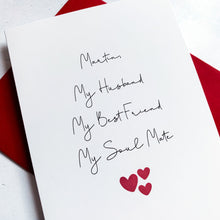 Martin,
My Husband
My Best Friend
My Soul Mate